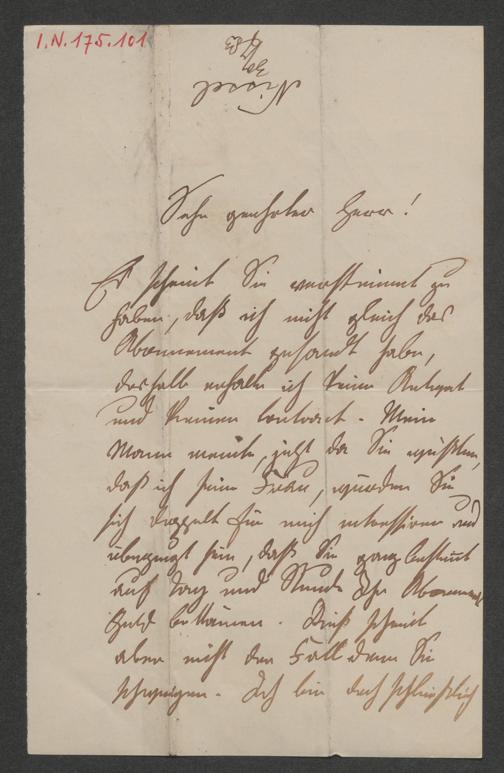 I.N. 175.101
Nissel
83
Sehr geehrter Herr!
Es scheint Sie verstimmt zu
haben, daß ich nicht gleich das
Abonnement gesandt habe,
deshalb erhalte ich keine Antwort
und keinen Contract. Mein
Mann meinte, jetzt da Sie wüßten,
daß ich seine Frau, würden Sie
sich doppelt für mich interessiren und
überzeugt sein, daß Sie ganz bestimmt
auf Tag und Stunde Ihr Abonnement
Geld bekämen. Dieß scheint
aber nicht der Fall denn Sie
schweigen. Ich bin doch schließlich